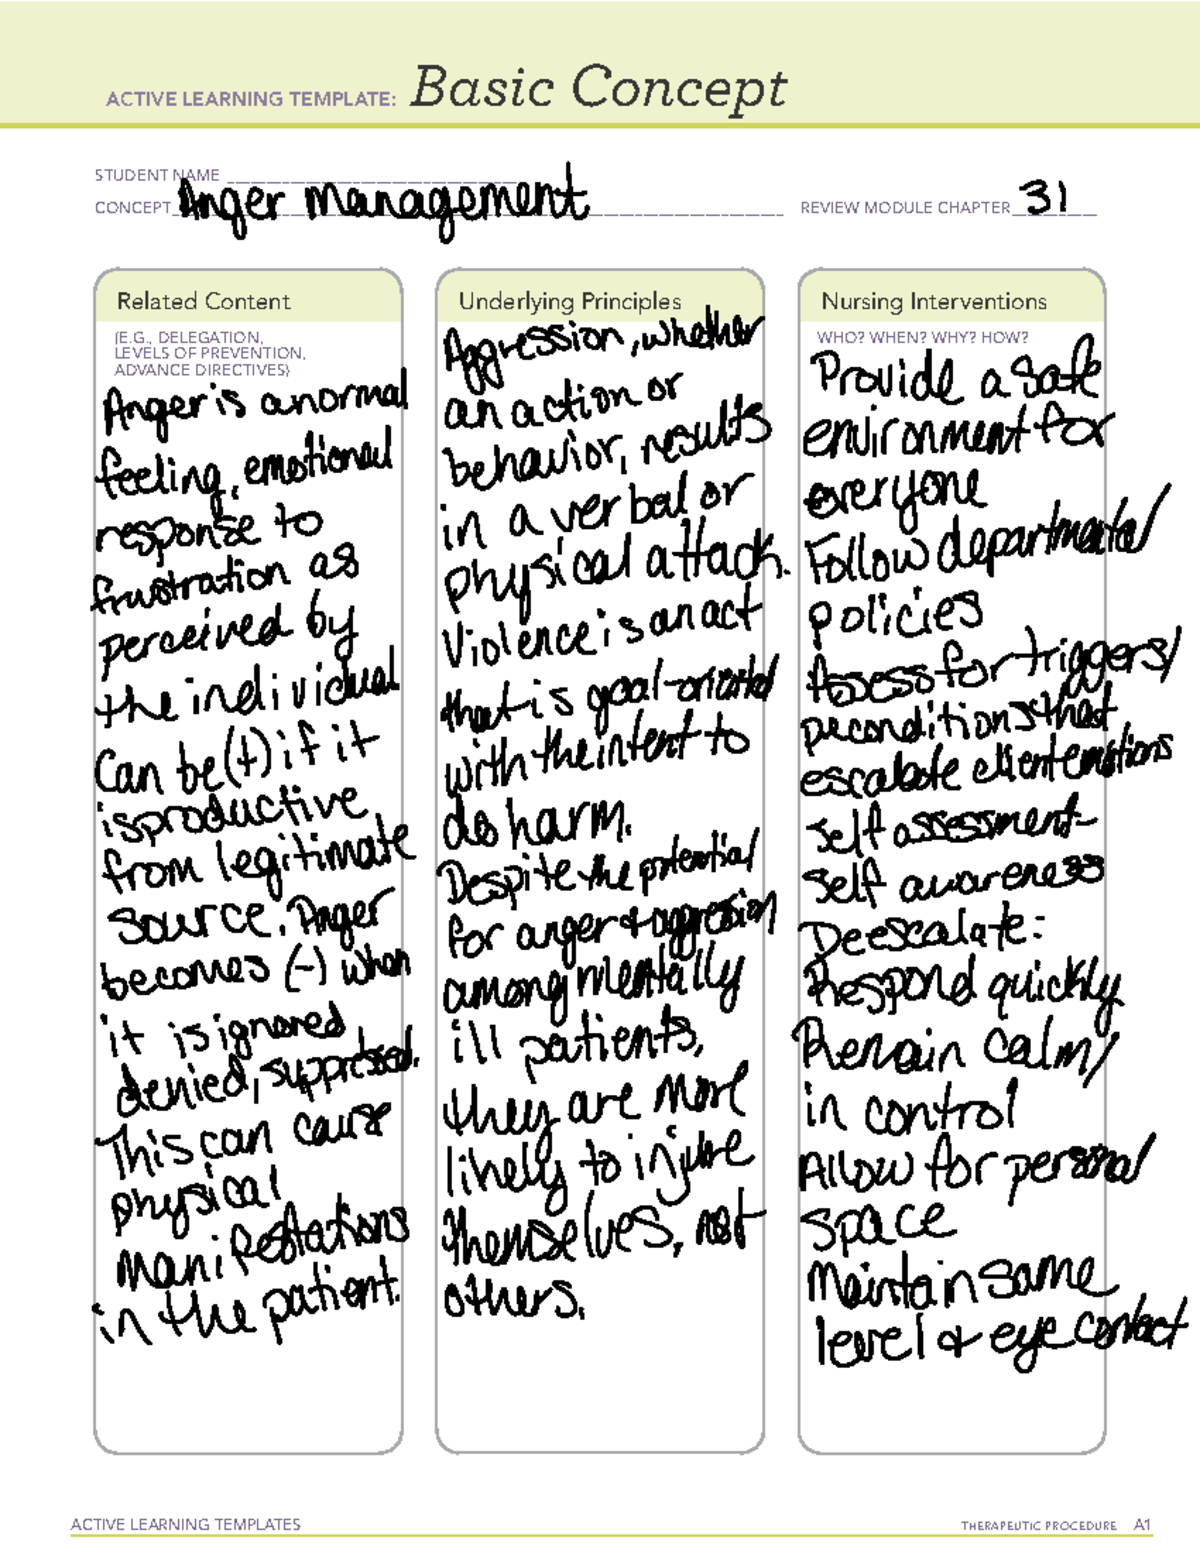 ACTIVE LEARNING TEMPLATE: Basic Concept
STUDENT NAME
CONCEPT Anger Management
REVIEW MODULE CHAPTER 31
Related Content
(E.G., DELEGATION,
LEVELS OF PREVENTION,
ADVANCE DIRECTIVES)
Anger is a normal
feeling, emotional
response to
frustration as
perceived by
the individual
Can be (+) if it
is productive
from legitimate
source. Anger
becomes (-) when
it is ignored
denied, suppressed.
This can cause
physical
manifestations
in the patient.
Underlying Principles
Aggression, whether
an action or
behavior, results
in a verbal or
physical attack.
Violence is an act
that is goal-oriented
with the intent to
do harm.
Despite the potential
for anger & aggression
among mentally
ill patients,
they are more
likely to injure
themselves, not
others.
Nursing Interventions
WHO? WHEN? WHY? HOW?
Provide a safe
environment for
everyone
Follow departmental
policies
Assess for triggers/
preconditions that
escalate client emotions
Self assessment-
Self awareness
Deescalate:
Respond quickly
Remain calm/
in control
Allow for personal
space
Maintain same
level & eye contact
ACTIVE LEARNING TEMPLATES
THERAPEUTIC PROCEDURE A1